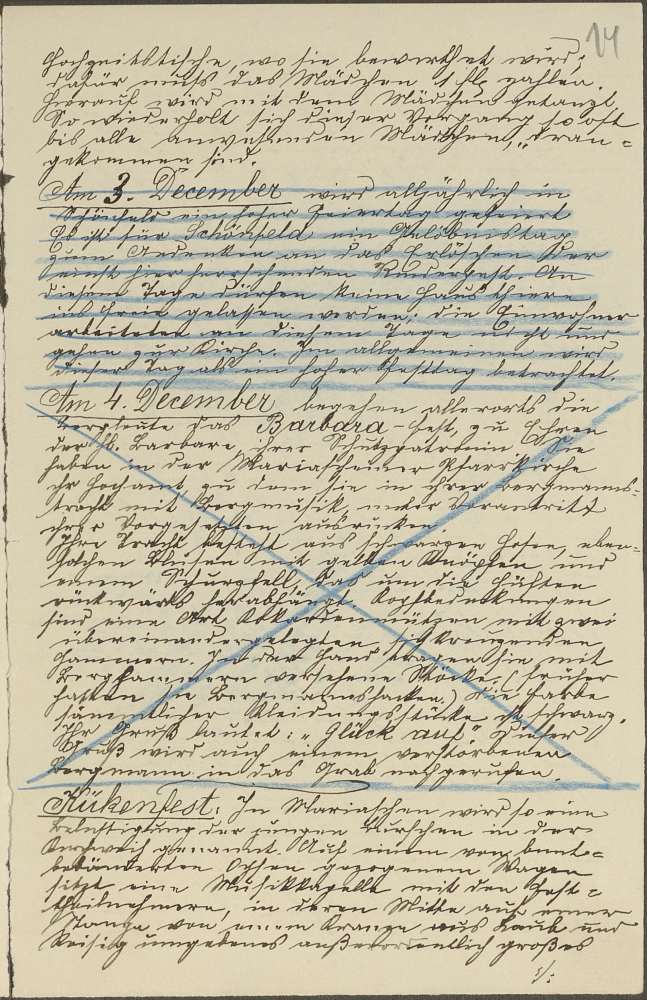 14
Hochzeitstische, wo sie bewirthet wird;
dafür muß das Mädchen 1 fl. zahlen.
Hierauf wird mit dem Mädchen getanzt.
So wiederholt sich dieser Vorgang so oft
bis alle anwesenden Mädchen „dran-
gekommen sind.
Am 3. December wird alljährlich in
Schönfeld ein hoher Feiertag gefeiert
Es ist für Schönfeld ein Gelöbnistag
zum Andenken an das Erlöschen der
einst hier herrschenden Rinderpest. An
diesem Tage dürfen keine Hausthiere
ins Freie gelassen werden; die Einwohner
arbeiteten an diesem Tage nicht und
gehen zur Kirche. Im allgemeinen wird
dieser Tag als ein hoher Festtag betrachtet.
Am 4. December begehen allerorts die
Bergleute das Barbara-Fest, zu Ehren
der hl. Barbara ihrer Schutzpatronin. Sie
haben in der Mariascheiner Pfarrkirche
ihr Hochamt, zu dem sie in ihrer Bergmanns-
tracht mit Bergmusik, unter Vorantritt
ihrer Vorgesetzten ausrücken.
Ihre Tracht besteht aus schwarzen Hosen, eben-
solchen Blusen mit gelben Knöpfen, und
einem Schurzfell, das um die Hüften
rückwärts herabhängt. Kopfbedeckungen
sind eine Art Kokardenmützen mit zwei
übereinandergelegten, sich kreuzenden
Hammern. In der Hand tragen sie mit
Berghammern versehene Stöcke. (früher
hatten sie Bergmannshacken.) Die Farbe
sämmtlicher Kleidungsstücke ist schwarz.
Ihr Gruß lautet: „Glück auf." Dieser
Gruß wird auch einem verstorbenen
Bergmann in das Grab nachgerufen.
Kükenfest: In Mariaschein wird so eine
Belustigung der jungen Burschen in der
genannt. Auf einem von bunt-
bebänderten Ochsen gezogenem Wagen
sitzt eine Musikkapelle mit den Fest-
theilnehmern, in deren Mitte auf einer
Stange von einem Kranze aus Laub und
Reisig umgebenes außerordentlich großes